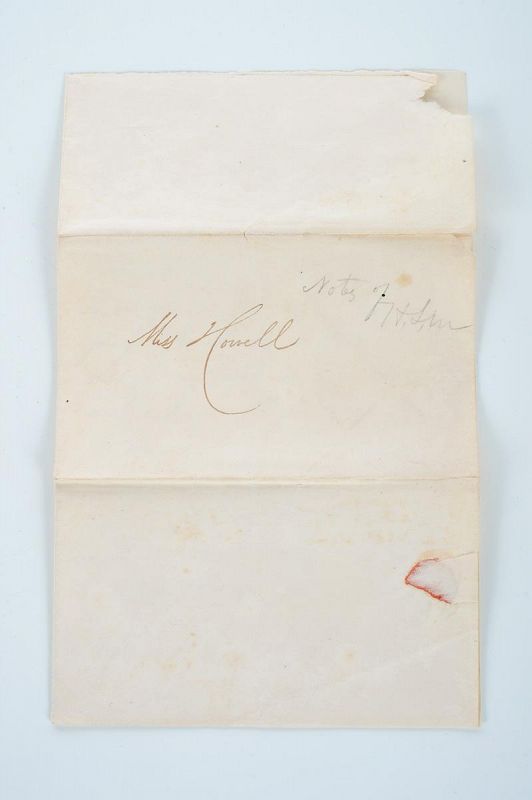 Notes of
Miss Howell